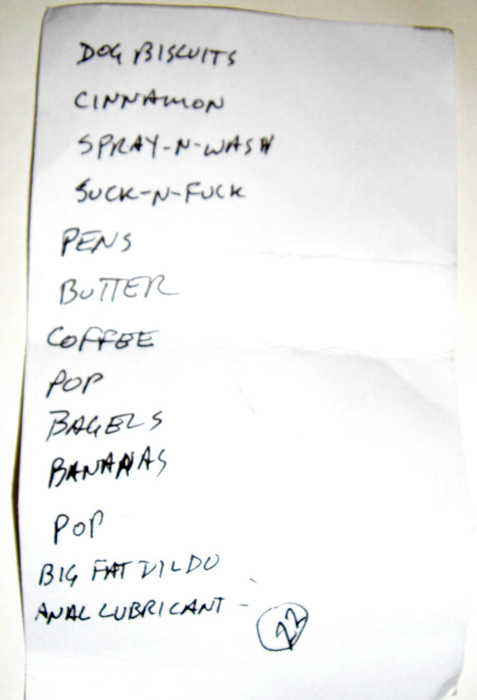 DOG BISCUITS
CINNAMON
SPRAY-N-WASH
SUCK-N-FUCK
PENS
BUTTER
COFFEE
POP
BAGELS
BANANAS
POP
BIG FAT DILDO
ANAL LUBRICANT -
22